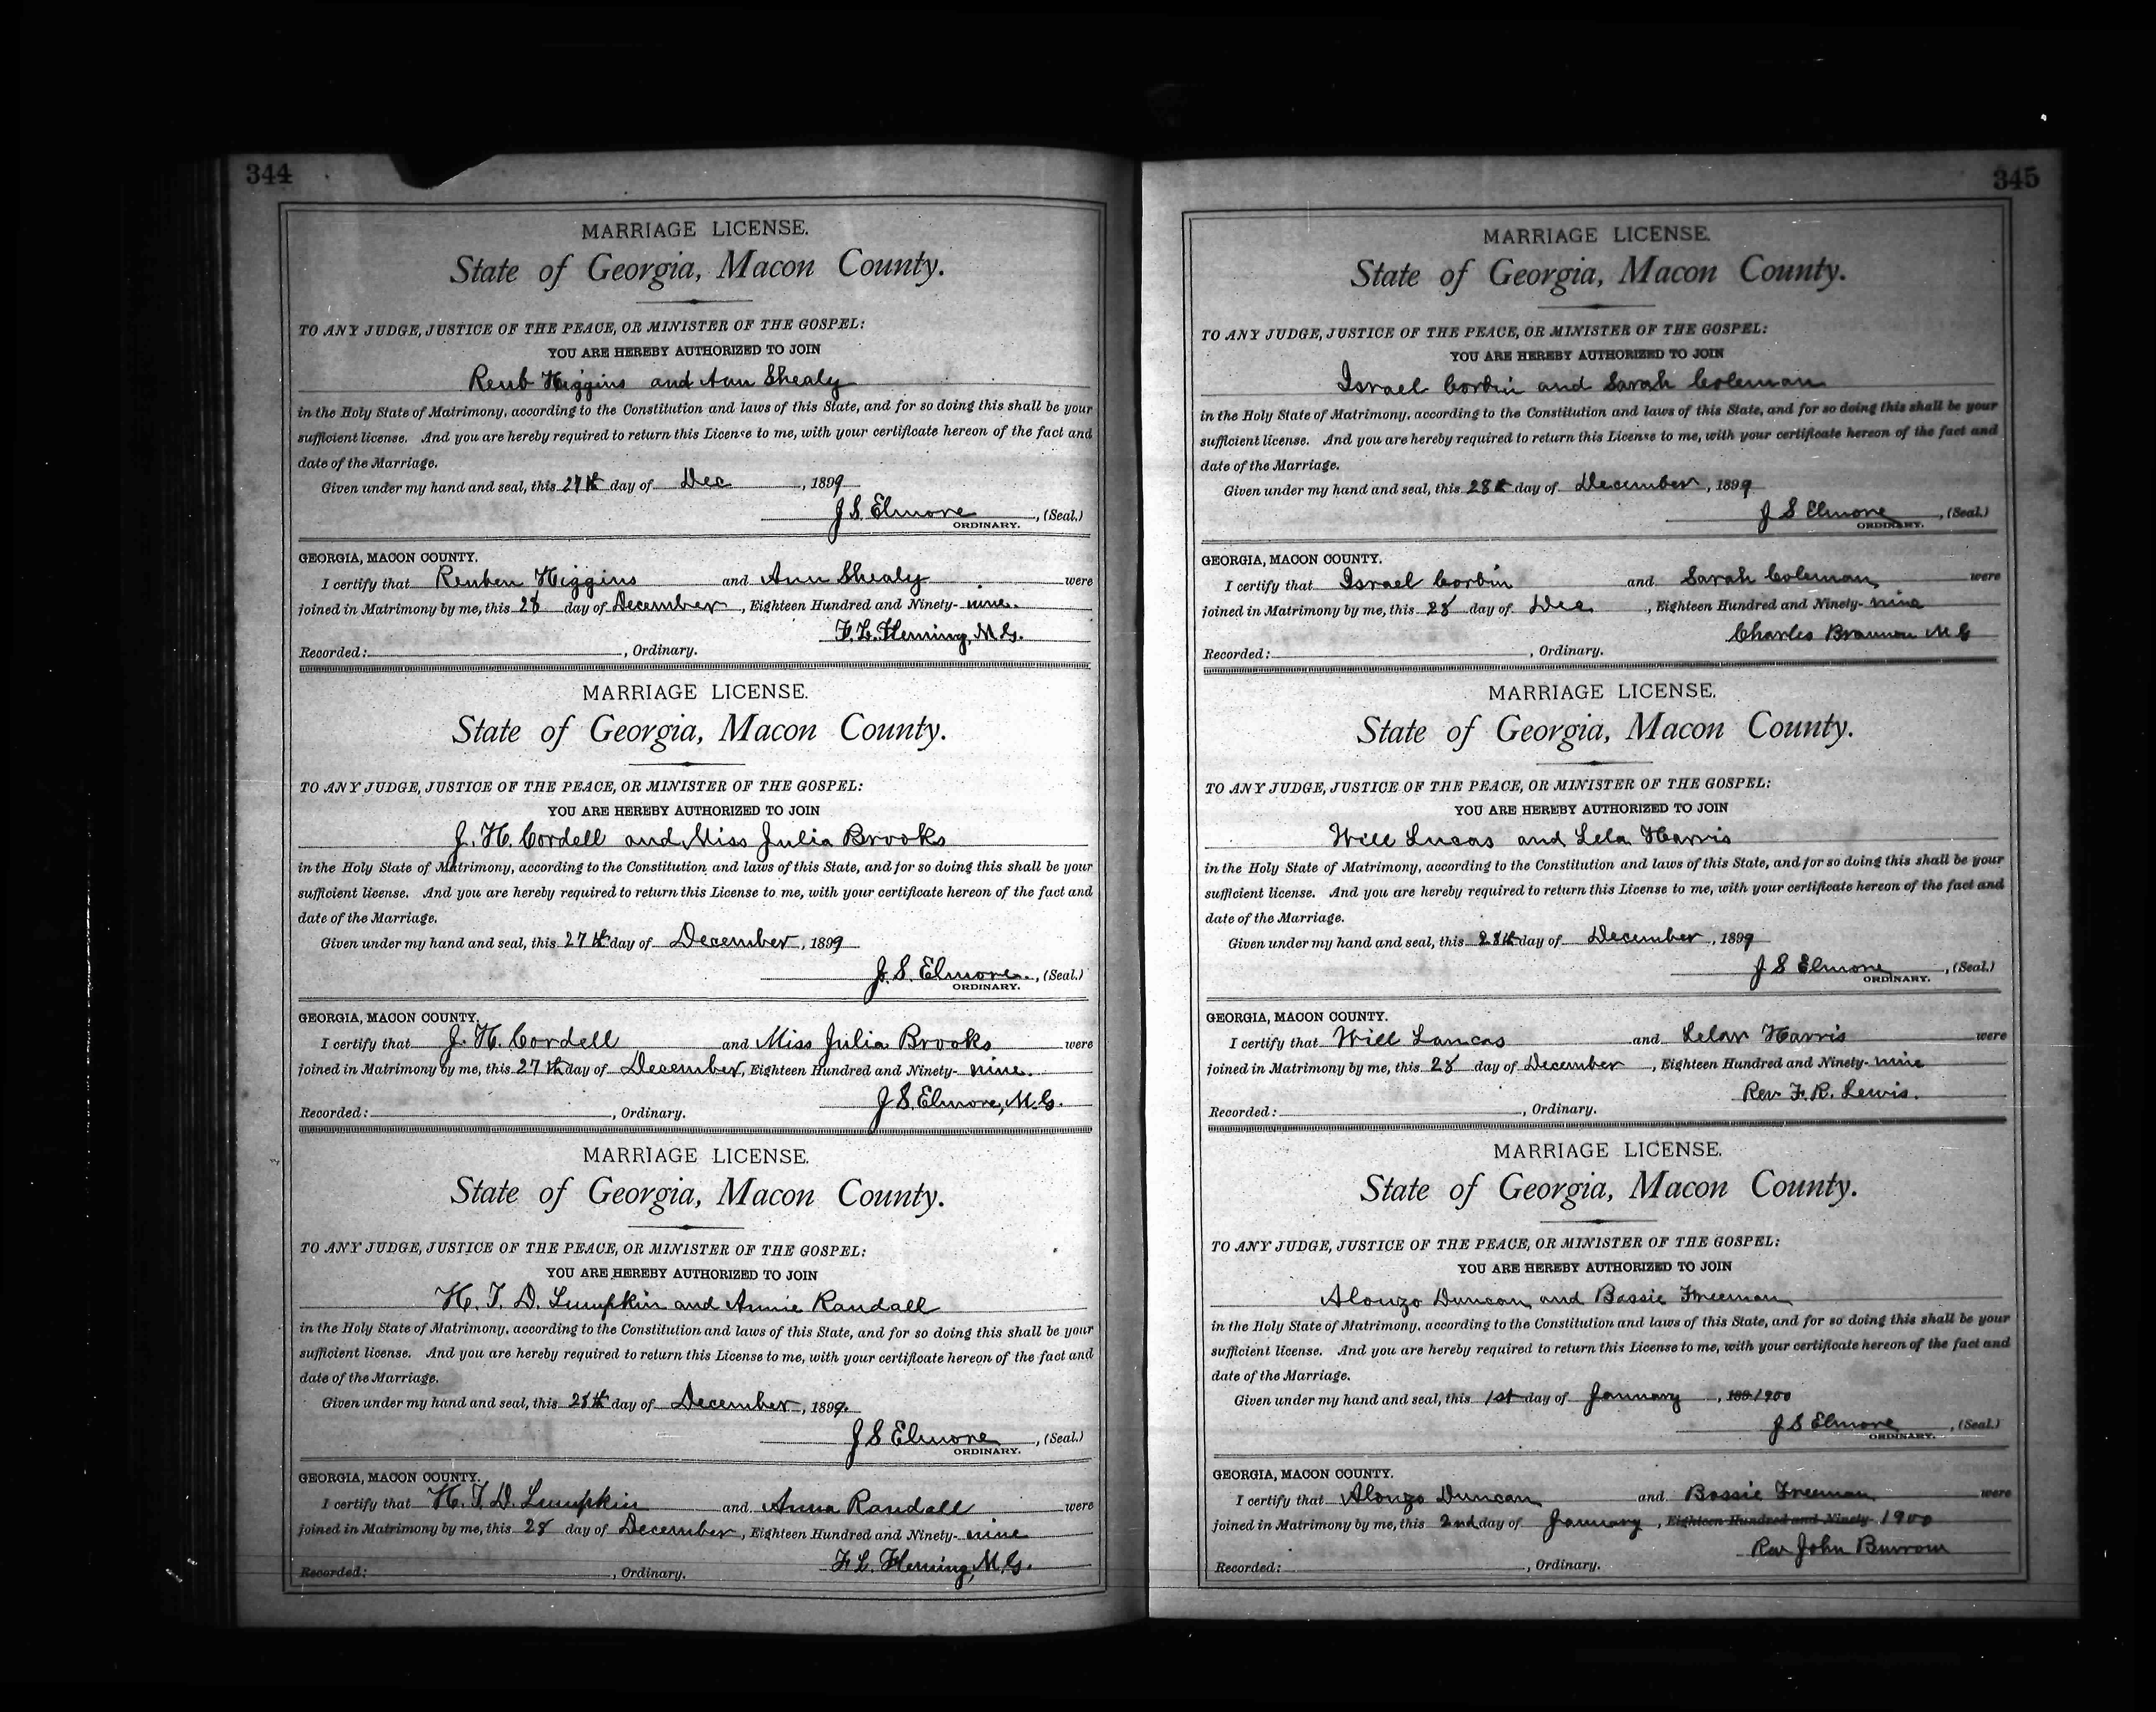 344
MARRIAGE LICENSE.
State of Georgia, Macon County.
TO ANY JUDGE, JUSTICE OF THE PEACE, OR MINISTER OF THE GOSPEL:
YOU ARE HEREBY AUTHORIZED TO JOIN
Reub Higgins and Ann Shealy
in the Holy State of Matrimony, according to the Constitution and laws of this State, and for so doing this shall be your
sufficient license. And you are hereby required to return this License to me, with your certificate hereon of the fact and
date of the Marriage.
Given under my hand and seal, this 27th day of Dec, 1899
J S. Elmore, (Seal.)
ORDINARY.
GEORGIA, MACON COUNTY.
I certify that Reuben Higgins and Ann Shealy were
joined in Matrimony by me, this 28 day of December, Eighteen Hundred and Ninety-nine.
F. L. Fleming, M. G.
Recorded: , Ordinary.
MARRIAGE LICENSE.
State of Georgia, Macon County.
TO ANY JUDGE, JUSTICE OF THE PEACE, OR MINISTER OF THE GOSPEL:
YOU ARE HEREBY AUTHORIZED TO JOIN
J. H. Cordell and Miss Julia Brooks
in the Holy State of Matrimony, according to the Constitution and laws of this State, and for so doing this shall be your
sufficient license. And you are hereby required to return this License to me, with your certificate hereon of the fact and
date of the Marriage.
Given under my hand and seal, this 27th day of December, 1899
J. S. Elmore., (Seal.)
ORDINARY.
GEORGIA, MACON COUNTY.
I certify that J. H. Cordell and Miss Julia Brooks were
joined in Matrimony by me, this 27th day of December, Eighteen Hundred and Ninety-nine.
J S. Elmore, M. G.
Recorded: , Ordinary.
MARRIAGE LICENSE.
State of Georgia, Macon County.
TO ANY JUDGE, JUSTICE OF THE PEACE, OR MINISTER OF THE GOSPEL:
YOU ARE HEREBY AUTHORIZED TO JOIN
H. T. D. Lumpkin and Annie Randall
in the Holy State of Matrimony, according to the Constitution and laws of this State, and for so doing this shall be your
sufficient license. And you are hereby required to return this License to me, with your certificate hereon of the fact and
date of the Marriage.
Given under my hand and seal, this 28th day of December, 1899.
J S Elmore, (Seal.)
ORDINARY.
GEORGIA, MACON COUNTY.
I certify that H. T. D. Lumpkin and Anna Randall were
joined in Matrimony by me, this 28 day of December, Eighteen Hundred and Ninety-nine
F. L. Fleming, M. G.
Recorded: , Ordinary.
345
MARRIAGE LICENSE.
State of Georgia, Macon County.
TO ANY JUDGE, JUSTICE OF THE PEACE, OR MINISTER OF THE GOSPEL:
YOU ARE HEREBY AUTHORIZED TO JOIN
Israel Corbin and Sarah Coleman
in the Holy State of Matrimony, according to the Constitution and laws of this State, and for so doing this shall be your
sufficient license. And you are hereby required to return this License to me, with your certificate hereon of the fact and
date of the Marriage.
Given under my hand and seal, this 28th day of December, 1899
J S Elmore, (Seal.)
ORDINARY.
GEORGIA, MACON COUNTY.
I certify that Israel Corbin and Sarah Coleman were
joined in Matrimony by me, this 28 day of Dec, Eighteen Hundred and Ninety-nine
Charles Brannon M G
Recorded: , Ordinary.
MARRIAGE LICENSE.
State of Georgia, Macon County.
TO ANY JUDGE, JUSTICE OF THE PEACE, OR MINISTER OF THE GOSPEL:
YOU ARE HEREBY AUTHORIZED TO JOIN
Will Lucas and Lela Harris
in the Holy State of Matrimony, according to the Constitution and laws of this State, and for so doing this shall be your
sufficient license. And you are hereby required to return this License to me, with your certificate hereon of the fact and
date of the Marriage.
Given under my hand and seal, this 28th day of December, 1899
J S Elmore, (Seal.)
ORDINARY.
GEORGIA, MACON COUNTY.
I certify that Will Luncas and Lelar Harris were
joined in Matrimony by me, this 28 day of December, Eighteen Hundred and Ninety-nine
Rev F. R. Lewis.
Recorded: , Ordinary.
MARRIAGE LICENSE.
State of Georgia, Macon County.
TO ANY JUDGE, JUSTICE OF THE PEACE, OR MINISTER OF THE GOSPEL:
YOU ARE HEREBY AUTHORIZED TO JOIN
Alonzo Duncan and Bassie Freeman
in the Holy State of Matrimony, according to the Constitution and laws of this State, and for so doing this shall be your
sufficient license. And you are hereby required to return this License to me, with your certificate hereon of the fact and
date of the Marriage.
Given under my hand and seal, this 1st day of January, 189 1900
J S Elmore, (Seal.)
ORDINARY.
GEORGIA, MACON COUNTY.
I certify that Alonzo Duncan and Bossie Freeman were
joined in Matrimony by me, this 2nd day of January, Eighteen Hundred and Ninety- 1900
Rev John Burrom
Recorded: , Ordinary.